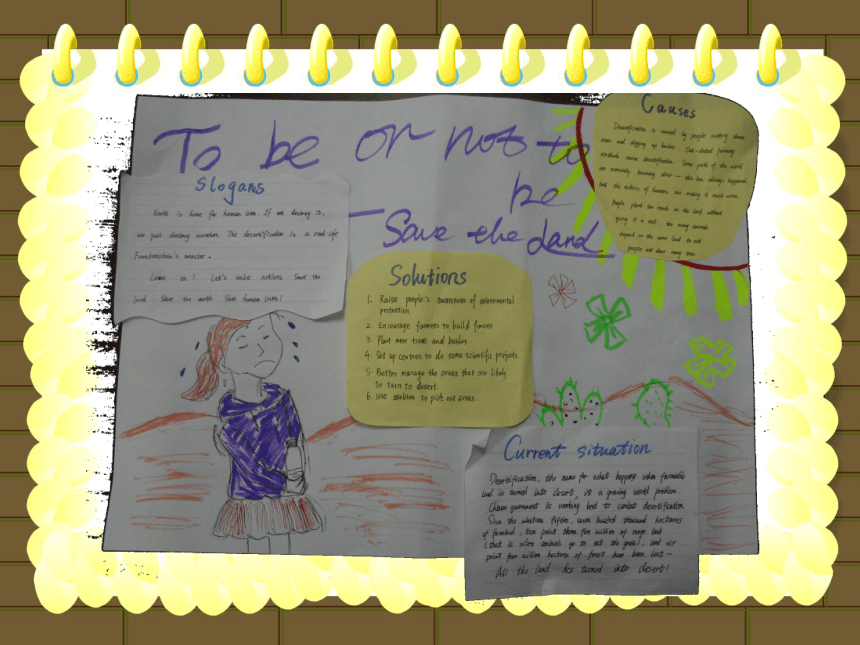 To be or not to
be
— Save the Land
Slogans
Earth is home for human lives. If we destroy it,
we just destroy ourselves. The desertification is a real-life
Frankenstein's monster.
Come on! Let's take actions. Save the
land. Save the earth. Save human lives!
Causes
Desertification is caused by people cutting down
trees and digging up bushes.
methods cause desertification. Some parts of the world
are naturally becoming drier — this has always happened,
but the actions of humans are making it much worse.
People plant too much on the land without
giving it a rest. Too many animals
depend on the same land to eat
people not
Solutions
1. Raise people's awareness of environmental
protection
2. Encourage farmers to build fences
3. Plant new trees and bushes
4. Set up centres to do some scientific projects
5. Better manage the areas that are likely
to turn to desert
6. Use to pick out areas
Current situation
Desertification, the name for what happens when farmable
land is turned into desert, is a growing world problem.
government is working hard to combat desertification.
Since the nineteen fifties, seven hundred thousand hectares
of farmland, two point three five million of range land
(that is where animals go to eat the grass), and six
point four million hectares of forest have been lost —
All the land has turned into desert!